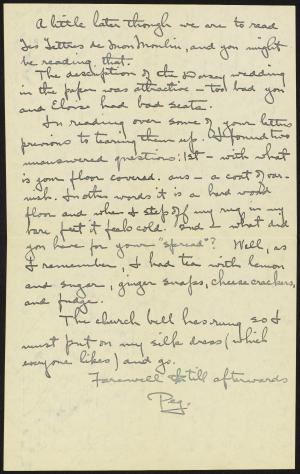 A little later though we are to read
Les Lettres de Mon Moulin, and you might
be reading that.
The description of the Dorsey wedding
in the paper was attractive - too bad you
and Eloise had bad seats.
In reading over some of your letters
previous to tearing them up - I found two
unanswered questions; 1st - with what
is your floor covered. ans - a coat of var-
nish. In other words it is a hard wood
floor and when I step off my rug in my
bare feet it feels cold. 2nd - what did
you have for your "spread"? Well, as
I remember, I had tea with lemon
and sugar, ginger snaps, cheese crackers,
and fudge.
The church bell has rung so I
must put on my silk dress (which
everyone likes) and go.
Farewell till afterwards
Peg.